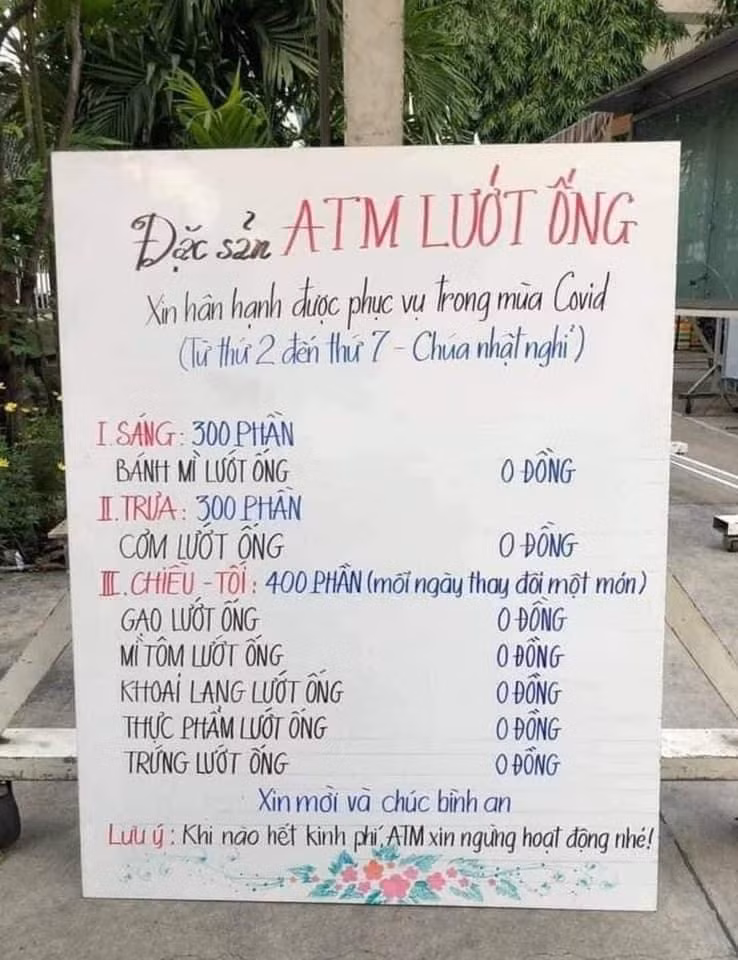 Đặc sản ATM LƯỚT ỐNG
Xin hân hạnh được phục vụ trong mùa Covid
(Từ thứ 2 đến thứ 7 - Chúa nhật nghỉ)
I. SÁNG: 300 PHẦN
BÁNH MÌ LƯỚT ỐNG 0 ĐỒNG
II. TRƯA: 300 PHẦN
CƠM LƯỚT ỐNG 0 ĐỒNG
III. CHIỀU - TỐI: 400 PHẦN (mỗi ngày thay đổi một món)
GẠO LƯỚT ỐNG 0 ĐỒNG
MÌ TÔM LƯỚT ỐNG 0 ĐỒNG
KHOAI LANG LƯỚT ỐNG 0 ĐỒNG
THỰC PHẨM LƯỚT ỐNG 0 ĐỒNG
TRỨNG LƯỚT ỐNG 0 ĐỒNG
Xin mời và chúc bình an
Lưu ý: Khi nào hết kinh phí, ATM xin ngừng hoạt động nhé!